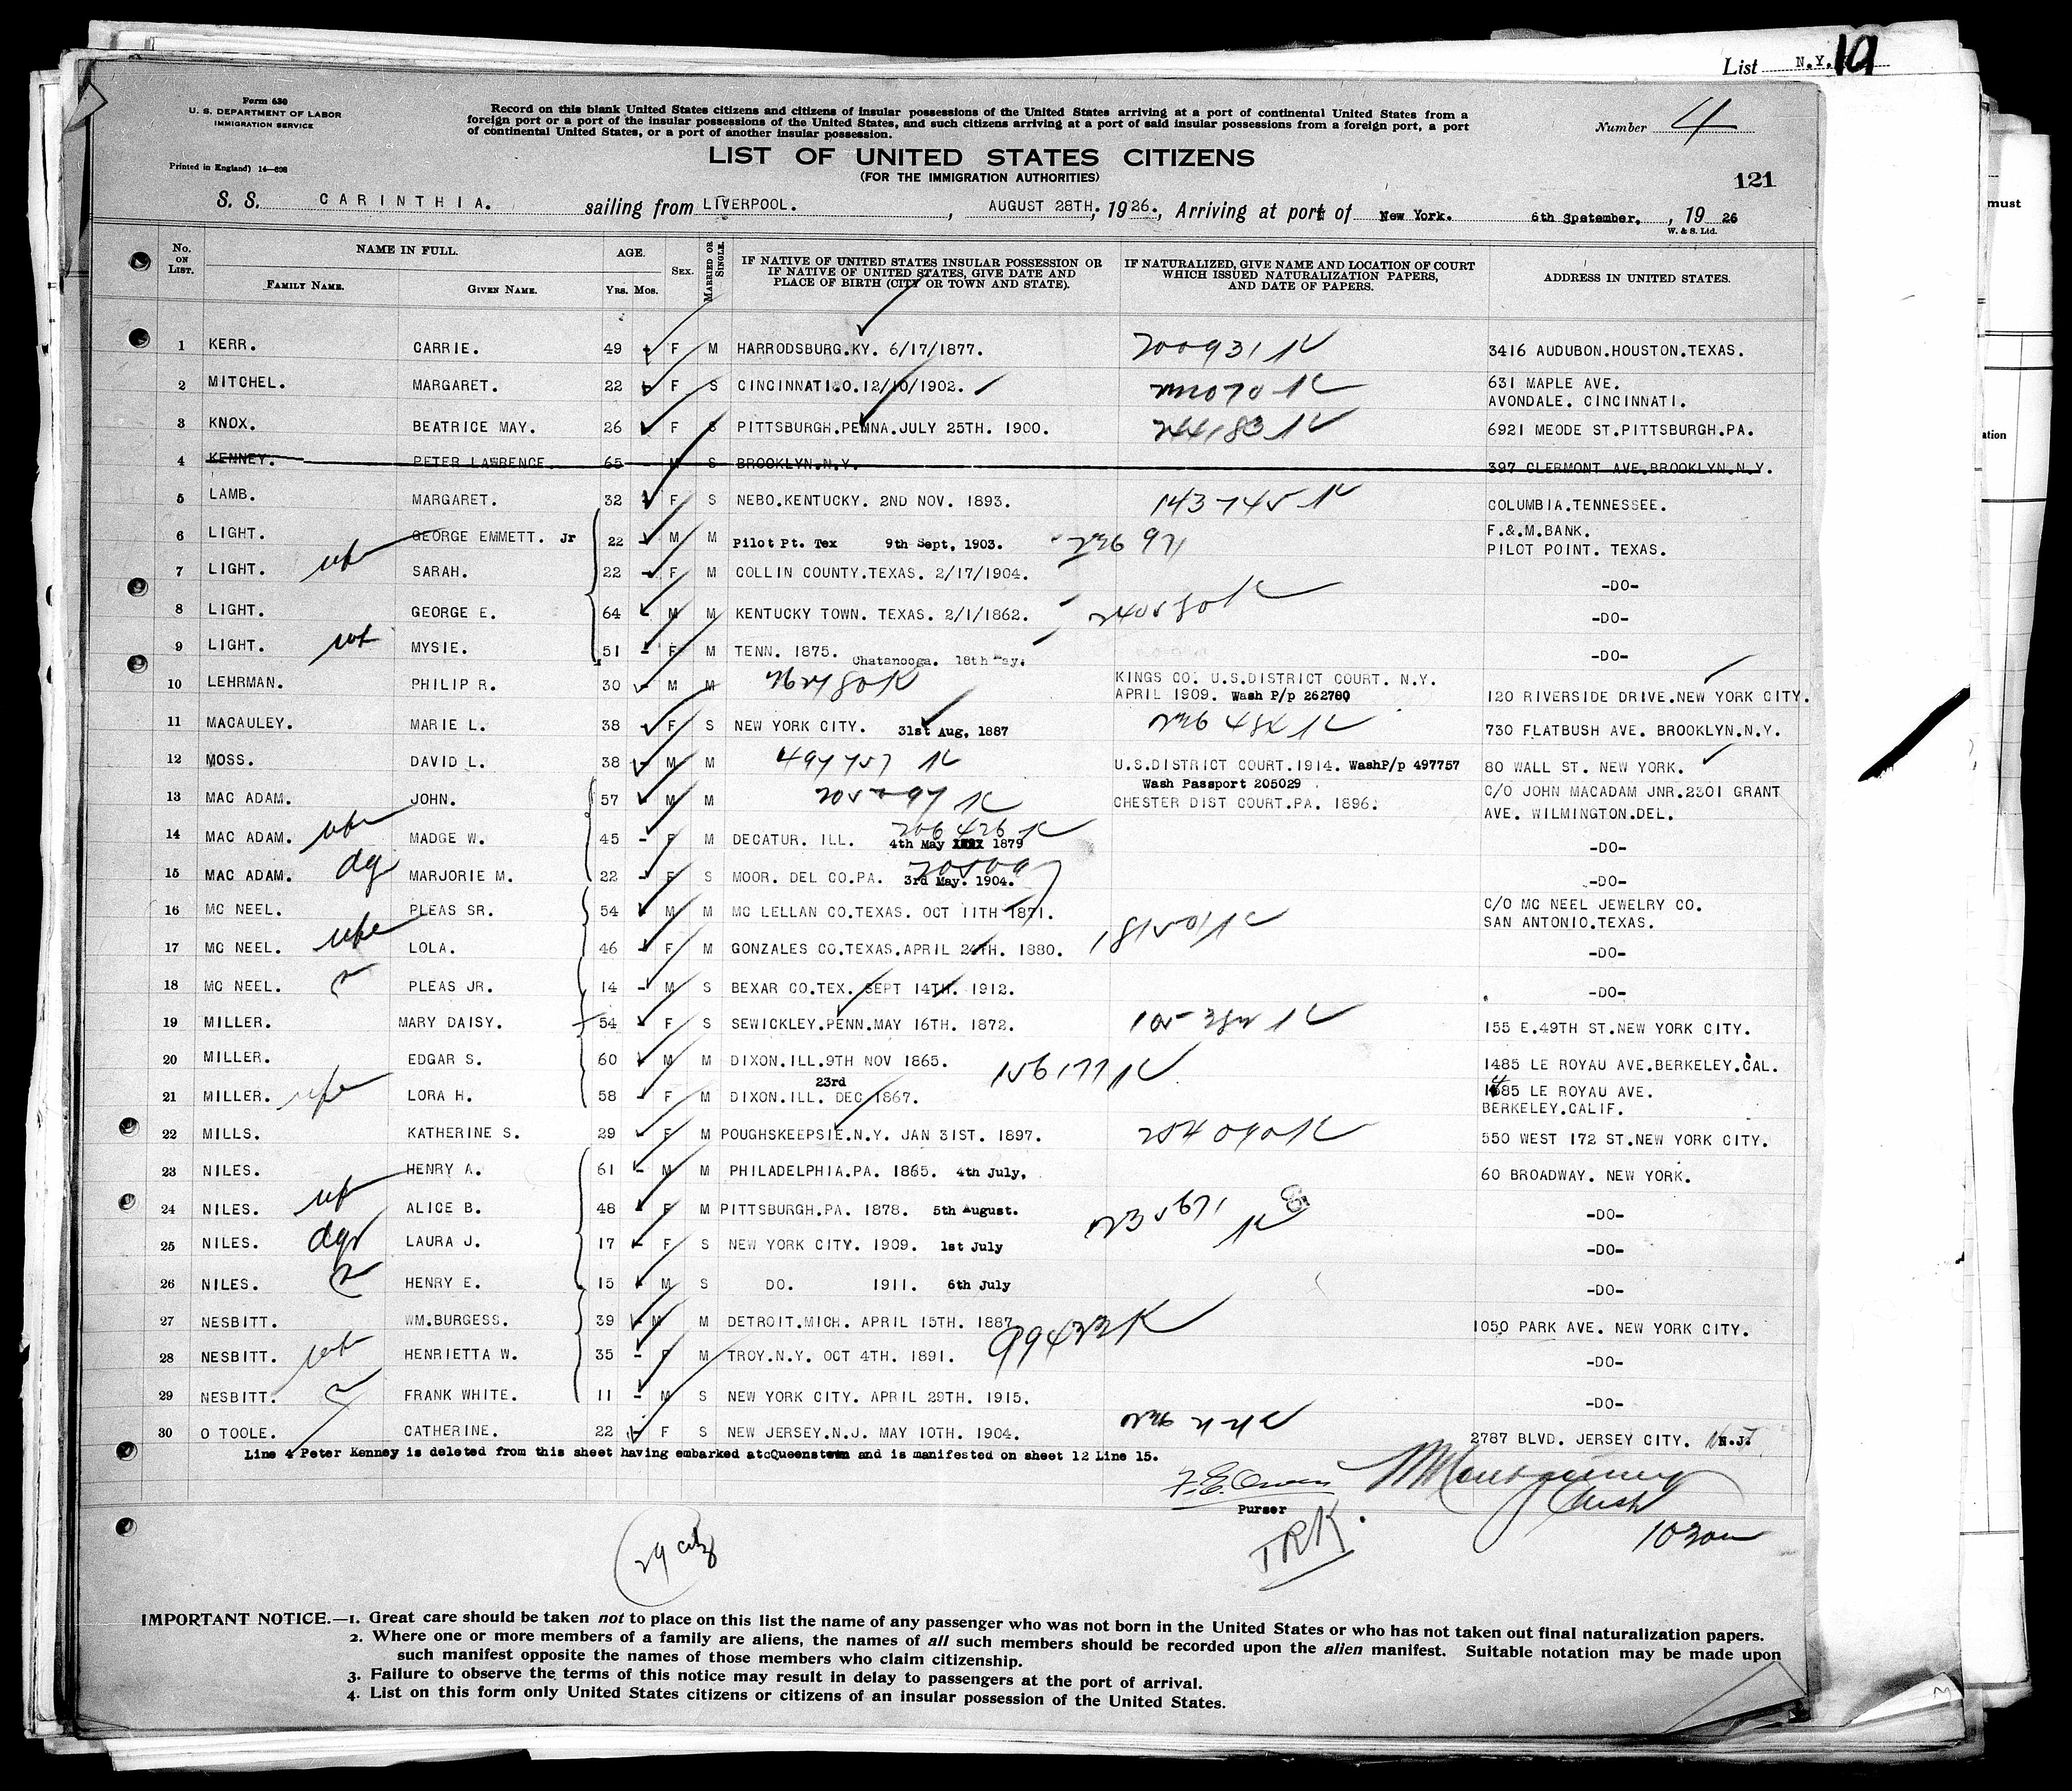 List N.Y. 19
Form 630
U. S. DEPARTMENT OF LABOR
IMMIGRATION SERVICE
Printed in England) 14—608
Record on this blank United States citizens and citizens of insular possessions of the United States arriving at a port of continental United States from a
foreign port or a port of the insular possessions of the United States, and such citizens arriving at a port of said insular possessions from a foreign port, a port
of continental United States, or a port of another insular possession.
Number 4
LIST OF UNITED STATES CITIZENS
(FOR THE IMMIGRATION AUTHORITIES)
121
S. S. CARINTHIA. sailing from LIVERPOOL. , AUGUST 28TH, 1926., Arriving at port of New York. 6th Spetember, , 19 26
W. & S. Ltd.
No. ON LIST. NAME IN FULL. AGE. SEX. MARRIED OR SINGLE. IF NATIVE OF UNITED STATES INSULAR POSSESSION OR IF NATIVE OF UNITED STATES, GIVE DATE AND PLACE OF BIRTH (CITY OR TOWN AND STATE). IF NATURALIZED, GIVE NAME AND LOCATION OF COURT WHICH ISSUED NATURALIZATION PAPERS, AND DATE OF PAPERS. ADDRESS IN UNITED STATES.
FAMILY NAME. GIVEN NAME. YRS. MOS.
1 KERR. CARRIE. 49 - F M HARRODSBURG.KY. 6/17/1877. 200931 K 3416 AUDUBON.HOUSTON.TEXAS.
2 MITCHEL. MARGARET. 22 - F S CINCINNATI.O.12/10/1902. 631 MAPLE AVE.
AVONDALE. CINCINNATI.
3 KNOX. BEATRICE MAY. 26 F S PITTSBURGH.PENNA.JULY 25TH. 1900. 244183 K 6921 MEODE ST.PITTSBURGH.PA.
4 KENNEY. PETER LAWRENCE 65 - M S BROOKLYN.N.Y. 397 CLERMONT AVE.BROOKLYN.N.Y.
5 LAMB. MARGARET. 32 F S NEBO.KENTUCKY. 2ND NOV. 1893. 143745 K COLUMBIA.TENNESSEE.
6 LIGHT. GEORGE EMMETT. Jr 22 M M Pilot Pt. Tex 9th Sept, 1903. F.&.M.BANK.
PILOT POINT. TEXAS.
7 LIGHT. wfe SARAH. 22 - F M COLLIN COUNTY.TEXAS. 2/17/1904. -DO-
8 LIGHT. GEORGE E. 64 - M M KENTUCKY TOWN. TEXAS. 2/1/1862. 240580 K -DO-
9 LIGHT. wf MYSIE. 51 - F M TENN. 1875. Chatanooga. 18th May. -DO-
10 LEHRMAN. PHILIP R. 30 - M M KINGS CO: U.S.DISTRICT COURT. N.Y.
APRIL 1909. Wash P/p 262780 120 RIVERSIDE DRIVE.NEW YORK CITY.
11 MACAULEY. MARIE L. 38 F S NEW YORK CITY. 31st Aug, 1887 236484 K 730 FLATBUSH AVE. BROOKLYN.N.Y.
12 MOSS. DAVID L. 38 - M M 497757 K U.S.DISTRICT COURT.1914. WashP/p 497757 80 WALL ST. NEW YORK.
13 MAC ADAM. JOHN. 57 M M 205029 K Wash Passport 205029
CHESTER DIST COURT.PA. 1896. C/O JOHN MACADAM JNR.2301 GRANT
AVE. WILMINGTON.DEL.
14 MAC ADAM. wfe MADGE W. 45 - F M DECATUR. ILL. 206426 K 4th May XXXX 1879 -DO-
15 MAC ADAM. dg MARJORIE M. 22 - F S MOOR. DEL CO.PA. 3rd May. 1904. -DO-
16 MC NEEL. PLEAS SR. 54 M M MC LELLAN CO.TEXAS. OCT 11TH 1871. C/O MC NEEL JEWELRY CO.
SAN ANTONIO.TEXAS.
17 MC NEEL. wfe LOLA. 46 - F M GONZALES CO.TEXAS.APRIL 24TH. 1880. -DO-
18 MC NEEL. PLEAS JR. 14 - M S BEXAR CO.TEX. SEPT 14TH. 1912. -DO-
19 MILLER. MARY DAISY. 54 F S SEWICKLEY.PENN.MAY 16TH. 1872. 155 E.49TH ST.NEW YORK CITY.
20 MILLER. EDGAR S. 60 M M DIXON.ILL.9TH NOV 1865. 156177 K 1485 LE ROYAU AVE.BERKELEY.CAL.
21 MILLER. wfe LORA H. 58 - F M DIXON.ILL. DEC 23rd 1867. 1485 LE ROYAU AVE.
BERKELEY.CALIF.
22 MILLS. KATHERINE S. 29 - F M POUGHSKEEPSIE.N.Y. JAN 31ST. 1897. 550 WEST 172 ST.NEW YORK CITY.
23 NILES. HENRY A. 61 - M M PHILADELPHIA.PA. 1865. 4th July, 60 BROADWAY. NEW YORK.
24 NILES. wf ALICE B. 48 F M PITTSBURGH.PA. 1878. 5th August. 235671 K -DO-
25 NILES. dgr LAURA J. 17 - F S NEW YORK CITY. 1909. 1st July -DO-
26 NILES. HENRY E. 15 M S DO. 1911. 6th July -DO-
27 NESBITT. WM.BURGESS. 39 M M DETROIT.MICH. APRIL 15TH. 1887 99433 K 1050 PARK AVE. NEW YORK CITY.
28 NESBITT. wf HENRIETTA W. 35 - F M TROY.N.Y. OCT 4TH. 1891. -DO-
29 NESBITT. FRANK WHITE. 11 - M S NEW YORK CITY. APRIL 29TH. 1915. -DO-
30 O TOOLE. CATHERINE. 22 F S NEW JERSEY.N.J. MAY 10TH. 1904. 2787 BLVD. JERSEY CITY. N.J.
Line 4 Peter Kenney is deleted from this sheet having embarked atcQueenstown and is manifested on sheet 12 Line 15.
F.E. Owen
Purser
Montgomery
29 citz
TRK.
1030am
IMPORTANT NOTICE.—1. Great care should be taken not to place on this list the name of any passenger who was not born in the United States or who has not taken out final naturalization papers.
2. Where one or more members of a family are aliens, the names of all such members should be recorded upon the alien manifest. Suitable notation may be made upon
such manifest opposite the names of those members who claim citizenship.
3. Failure to observe the terms of this notice may result in delay to passengers at the port of arrival.
4. List on this form only United States citizens or citizens of an insular possession of the United States.
must
ation